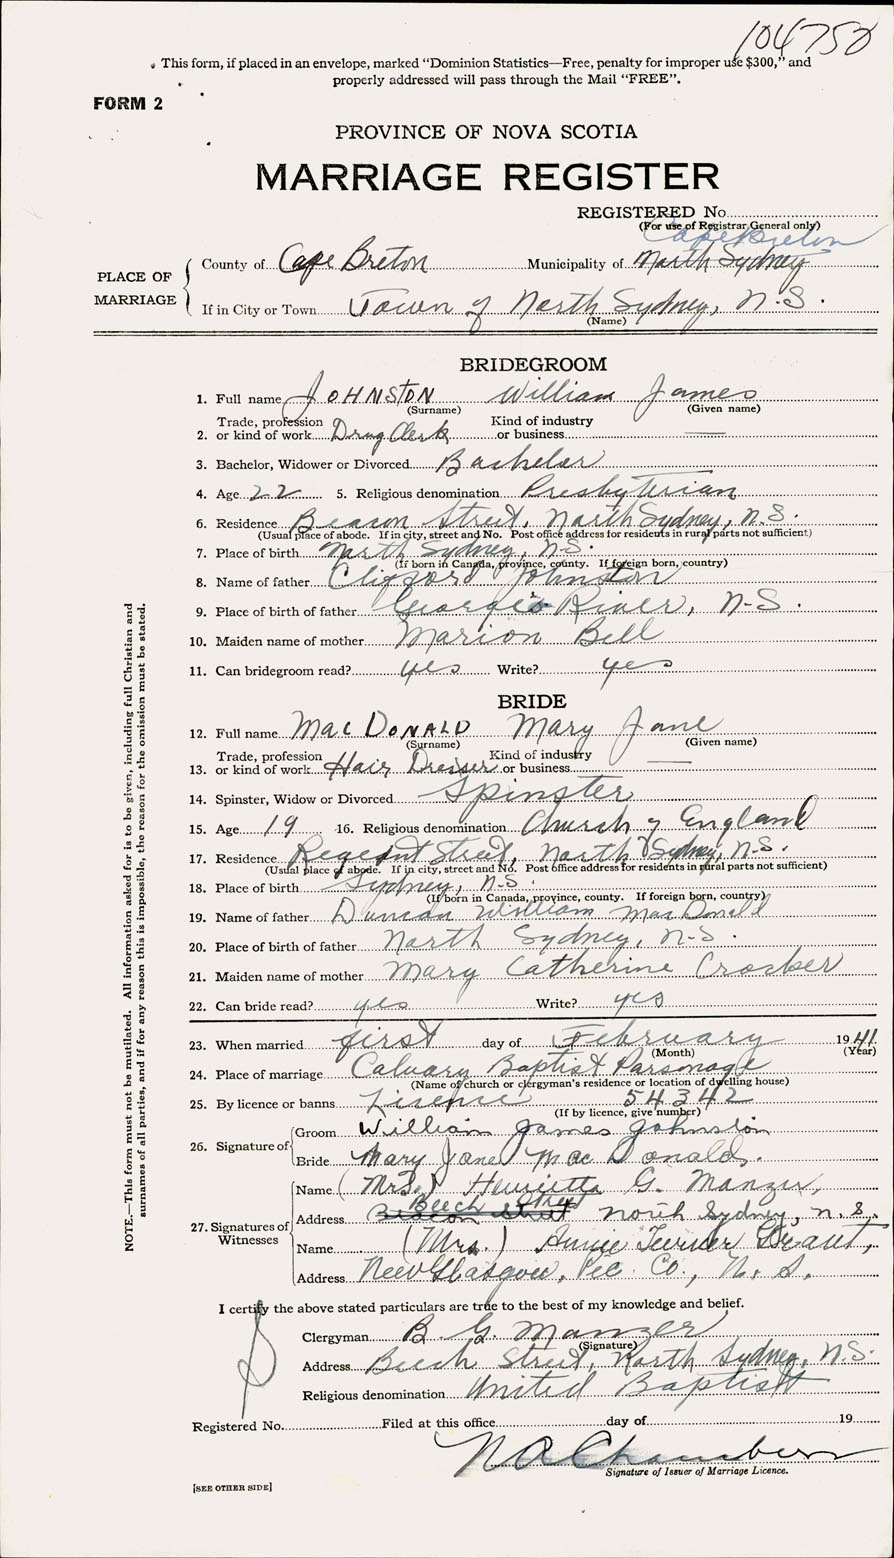 104750
This form, if placed in an envelope, marked "Dominion Statistics—Free, penalty for improper use $300," and
properly addressed will pass through the Mail "FREE".
FORM 2
PROVINCE OF NOVA SCOTIA
MARRIAGE REGISTER
REGISTERED No.
(For use of Registrar General only)
Cape Breton
PLACE OF MARRIAGE
County of Cape Breton Municipality of North Sydney
If in City or Town Town of North Sydney, N.S.
(Name)
BRIDEGROOM
1. Full name JOHNSTON William James
(Surname) (Given name)
2. Trade, profession or kind of work Drug Clerk Kind of industry or business —
3. Bachelor, Widower or Divorced Bachelor
4. Age 22 5. Religious denomination Presbyterian
6. Residence Beacon Street, North Sydney, N.S.
(Usual place of abode. If in city, street and No. Post office address for residents in rural parts not sufficient)
7. Place of birth North Sydney, N.S.
(If born in Canada, province, county. If foreign born, country)
8. Name of father Clifford Johnston
9. Place of birth of father George's River, N-S.
10. Maiden name of mother Marion Bell
11. Can bridegroom read? yes Write? yes
BRIDE
12. Full name MacDONALD Mary Jane
(Surname) (Given name)
13. Trade, profession or kind of work Hair Dresser Kind of industry or business —
14. Spinster, Widow or Divorced Spinster
15. Age 19 16. Religious denomination Church of England
17. Residence Regent Street, North Sydney, N.S.
(Usual place of abode. If in city, street and No. Post office address for residents in rural parts not sufficient)
18. Place of birth Sydney, N.S.
(If born in Canada, province, county. If foreign born, country)
19. Name of father Duncan William MacDonald
20. Place of birth of father North Sydney, N-S.
21. Maiden name of mother Mary Catherine Crosker
22. Can bride read? yes Write? yes
23. When married first day of February 1941
(Month) (Year)
24. Place of marriage Calvary Baptist Parsonage
(Name of church or clergyman's residence or location of dwelling house)
25. By licence or banns Licence 54342
(If by licence, give number)
26. Signature of Groom William James Johnston
Bride Mary Jane MacDonald.
27. Signatures of Witnesses
Name (Mrs.) Henrietta G. Manzer,
Beech Street
Address Beacon Street North Sydney, N.S.
Name (Mrs.) Annie Turner Grant,
Address New Glasgow, Pic. Co., N.S.
I certify the above stated particulars are true to the best of my knowledge and belief.
Clergyman B. G. Manzer
(Signature)
Address Beech Street, North Sydney, N.S.
Religious denomination United Baptist
Registered No. Filed at this office day of 19
N R Chambers
Signature of Issuer of Marriage Licence.
[SEE OTHER SIDE]
NOTE.—This form must not be mutilated. All information asked for is to be given, including full Christian and
surnames of all parties, and if for any reason this is impossible, the reason for the omission must be stated.